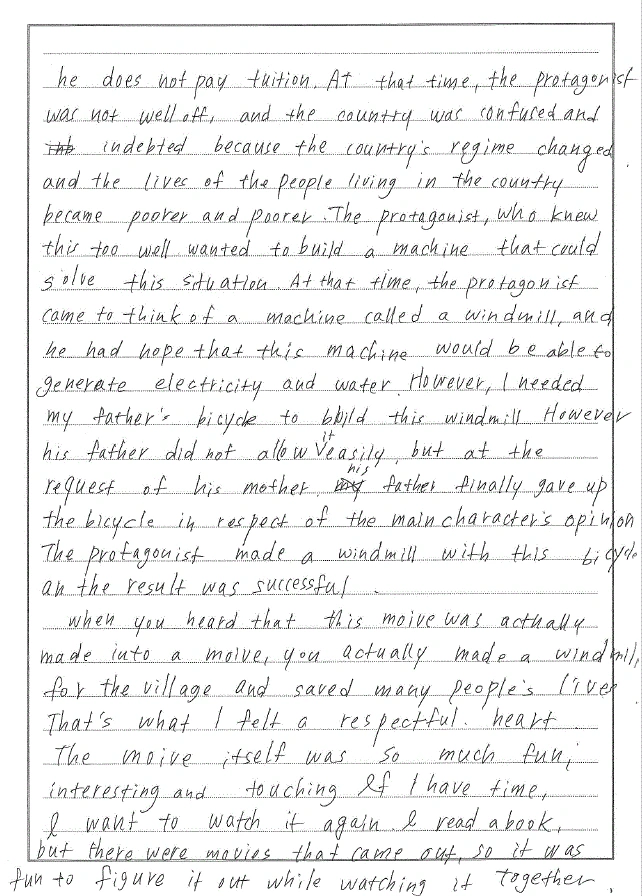 he does not pay tuition. At that time, the protagonist
was not well off, and the country was confused and
indebted because the country's regime changed
and the lives of the people living in the country
became poorer and poorer. The protagonist, who knew
this too well wanted to build a machine that could
solve this situation. At that time, the protagonist
came to think of a machine called a windmill, and
he had hope that this machine would be able to
generate electricity and water. However, I needed
my father's bicycle to build this windmill However
his father did not allow it easily, but at the
request of his mother, his father finally gave up
the bicycle in respect of the main character's opinion
The protagonist made a windmill with this bicycle
an the result was successful.
when you heard that this moive was actually
made into a moive, you actually made a windmill,
for the village and saved many people's lives
That's what I felt a respectful. heart
The moive itself was so much fun,
interesting and touching If I have time,
I want to watch it again. I read a book,
but there were movies that came out, so it was
fun to figure it out while watching it together.